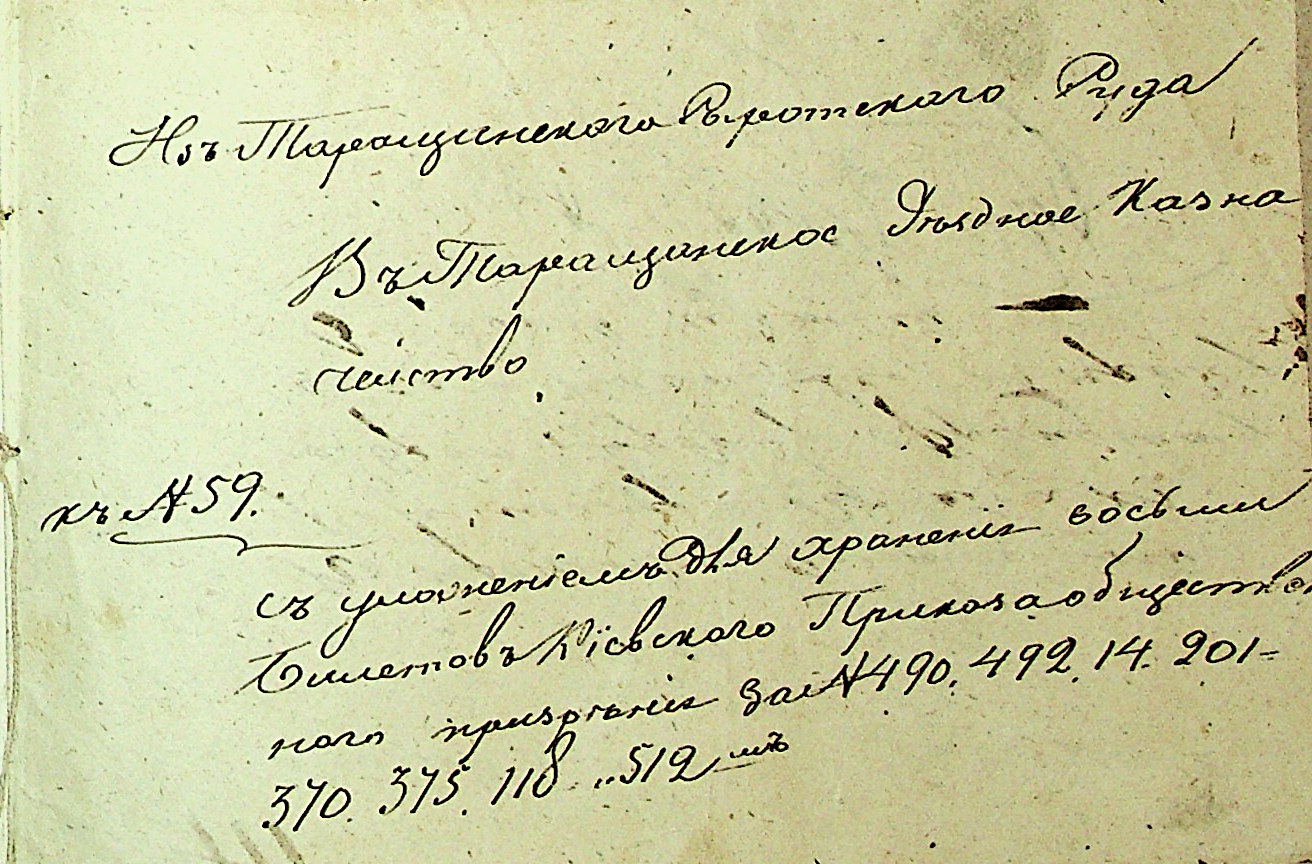 Изъ Таращинского Сиротского Суда
Въ Таращинское Уѣздное Казна
чейство
къ № 59.
съ уложеніемъ для храненія восьми
билетовъ Кіевского Приказа обществен
ного призрѣнія за № 490. 492. 14. 201-
370. 375. 118 „ 512 мъ